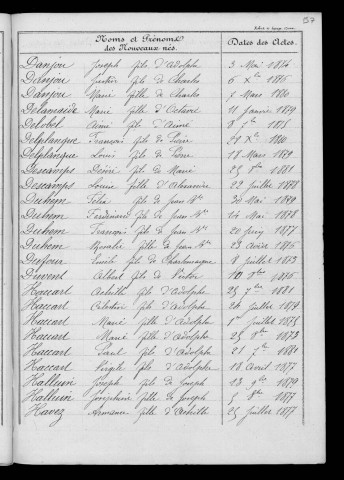 57
Noms et Prénoms
des Nouveaux nés.
Dates des Actes.
Danjou Joseph fils d'Adolphe 3 Mai 1874
Danjou Justin fils de Charles 6 Xbre 1875
Danjou Marie fille de Charles 7 Mars 1880
Marie fille d'Octavie 11 Janvier 1879
Delobel Aimé fils d'Aimé 1875
Delplanque François fils de Pierre Xbre 1880
Delplanque Louis fils de Pierre 18 Mars 1879
Descamps Désiré fils de Marie 25 1881
Descamps Louise fille d'Alexandre 22 Juillet 1878
Duhem Félix fils de Jean Bte 30 Mai 1880
Duhem Ferdinand fils de Jean Bte 24 Mai 1878
Duhem François fils de Jean Bte 20 1877
Duhem Rosalie fille de Jean Bte 23 1875
Dufour Emile fils de 8 Juillet 1873
Duvent Albert fils de Victor 10 1876
Haccart Achille fils d'Adolphe 25 7bre 1881
Haccart Célestine fils d'Adolphe 24 Juillet 1874
Haccart Marie fille d'Adolphe 1er Juillet 1875
Haccart Marie fille d'Adolphe 25 1873
Haccart Paul fils d'Adolphe 21 7bre 1880
Haccart Virgile fils d'Adolphe 18 Avril 1877
Halluin Joseph fils de Joseph 13 9bre 1879
Halluin Joséphine fille de Joseph 5 1877
Havez Armance fille d'Achille 25 Juillet 1877